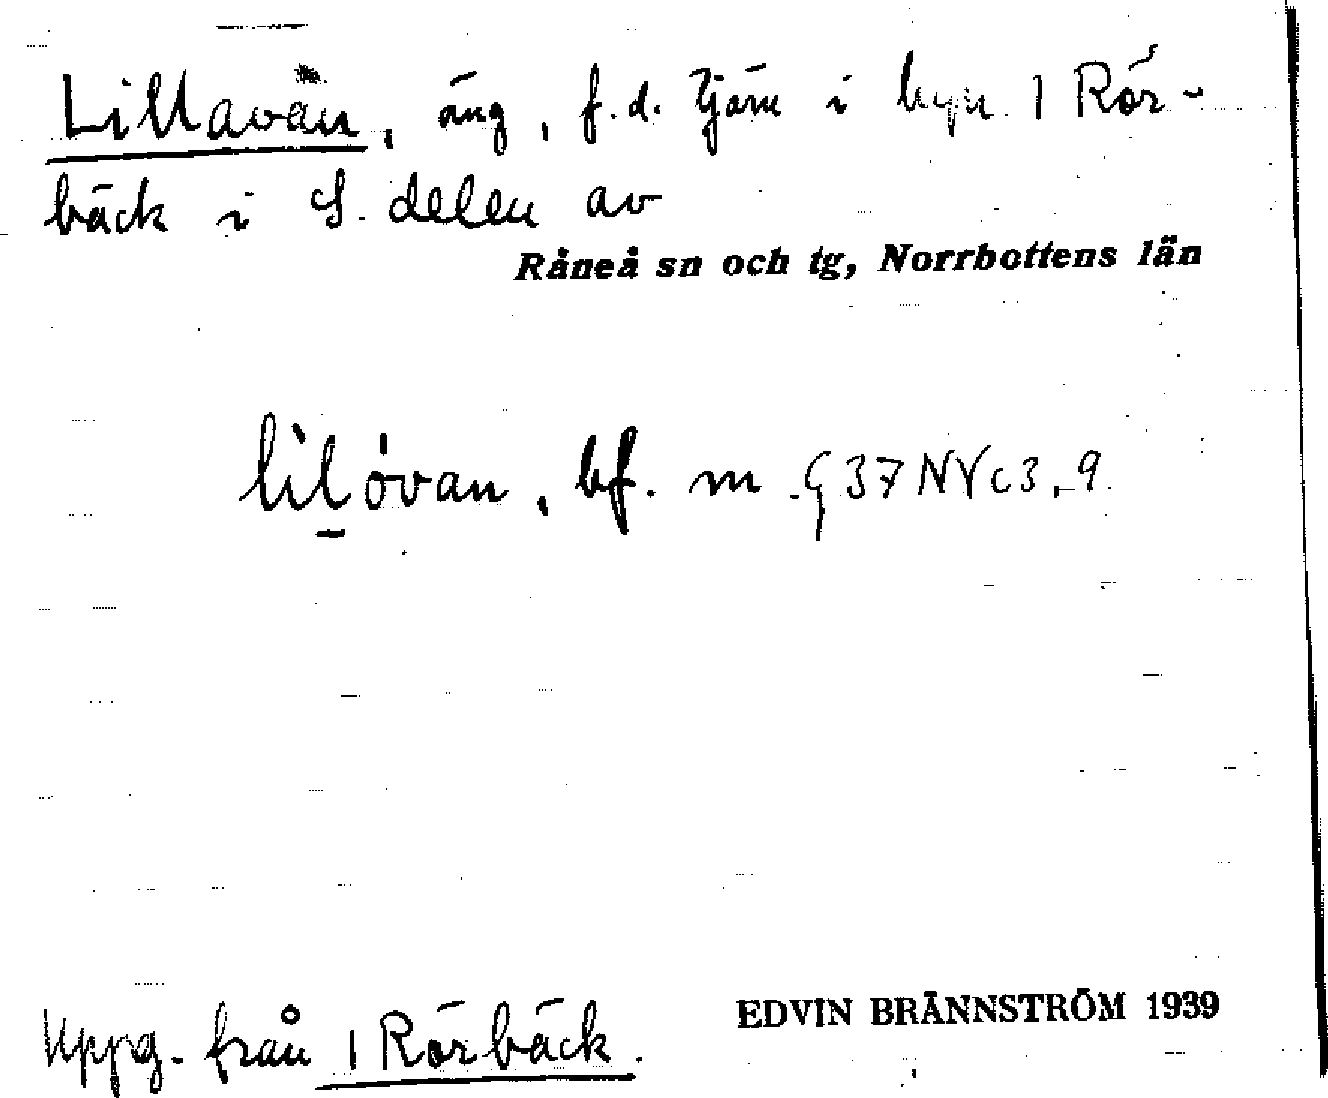 Lillavän, äng, f.d. tjärn i byn 1 Rör-
bäck i S. delen av
Råneå sn och tg, Norrbottens län
lìl̠óvan, bf. m G 37 NVc3,9
Uppg. från 1 Rörbäck.
EDVIN BRÄNNSTRÖM 1939